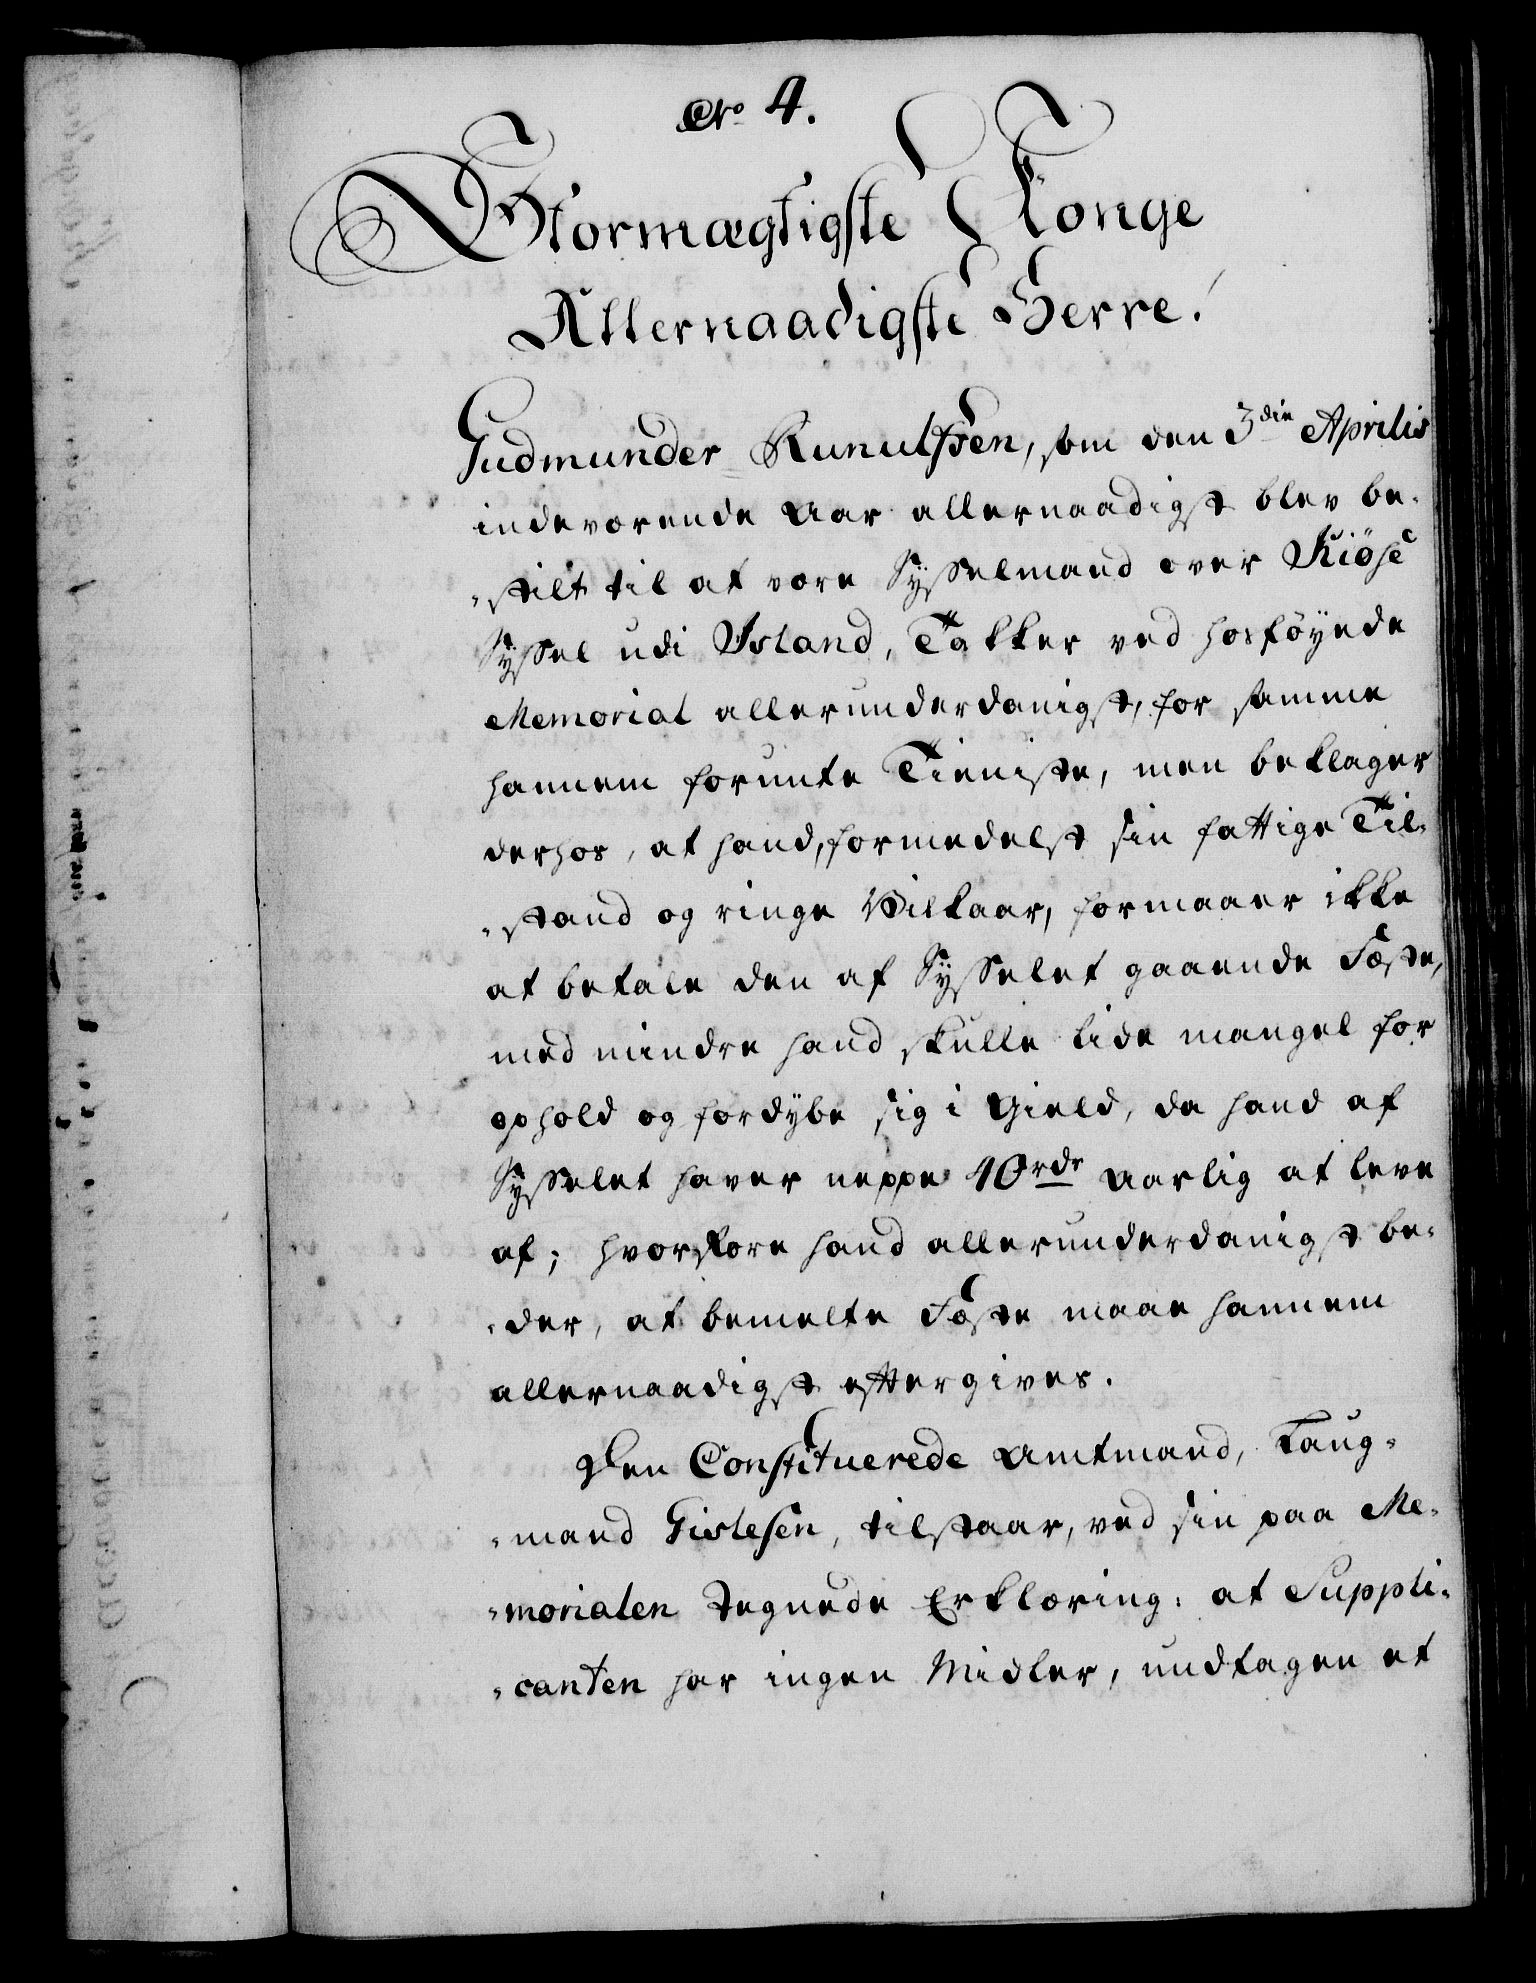 No 4.
Stormægtigste Konge
Allernaadigste Herre!
Gudmunder Runulfsen, som den 3die Aprilis
indeværende Aar allernaadigst blev be-
-stilt til at være Sysselmand over Kiöse
Syssel udi Island, Takker ved hosföyede
Memorial allerunderdanigst, for samme
hannem forunte Tieniste, men beklager
derhos, at hand, formedelst sin fattige Til-
-stand og ringe Vilkaar, formaaer ikke
at betale den af Sysselet gaaende Fæste,
med mindre hand skulle lide mangel for
ophold og fordybe sig i Gield, da hand af
Sysselet haver neppe 40rdr Aarlig at leve
af; hvorfore hand allerunderdanigst be-
-der, at bemelte Fæste maae hannem
allernaadigst eftergives.
Den Constituerede Amtmand, Laug-
-mand Gislesen, tilstaar, ved sin paa Me-
-morialen Tegnede Erklæring: at Suppli-
-canten har ingen Midler, undtagen et